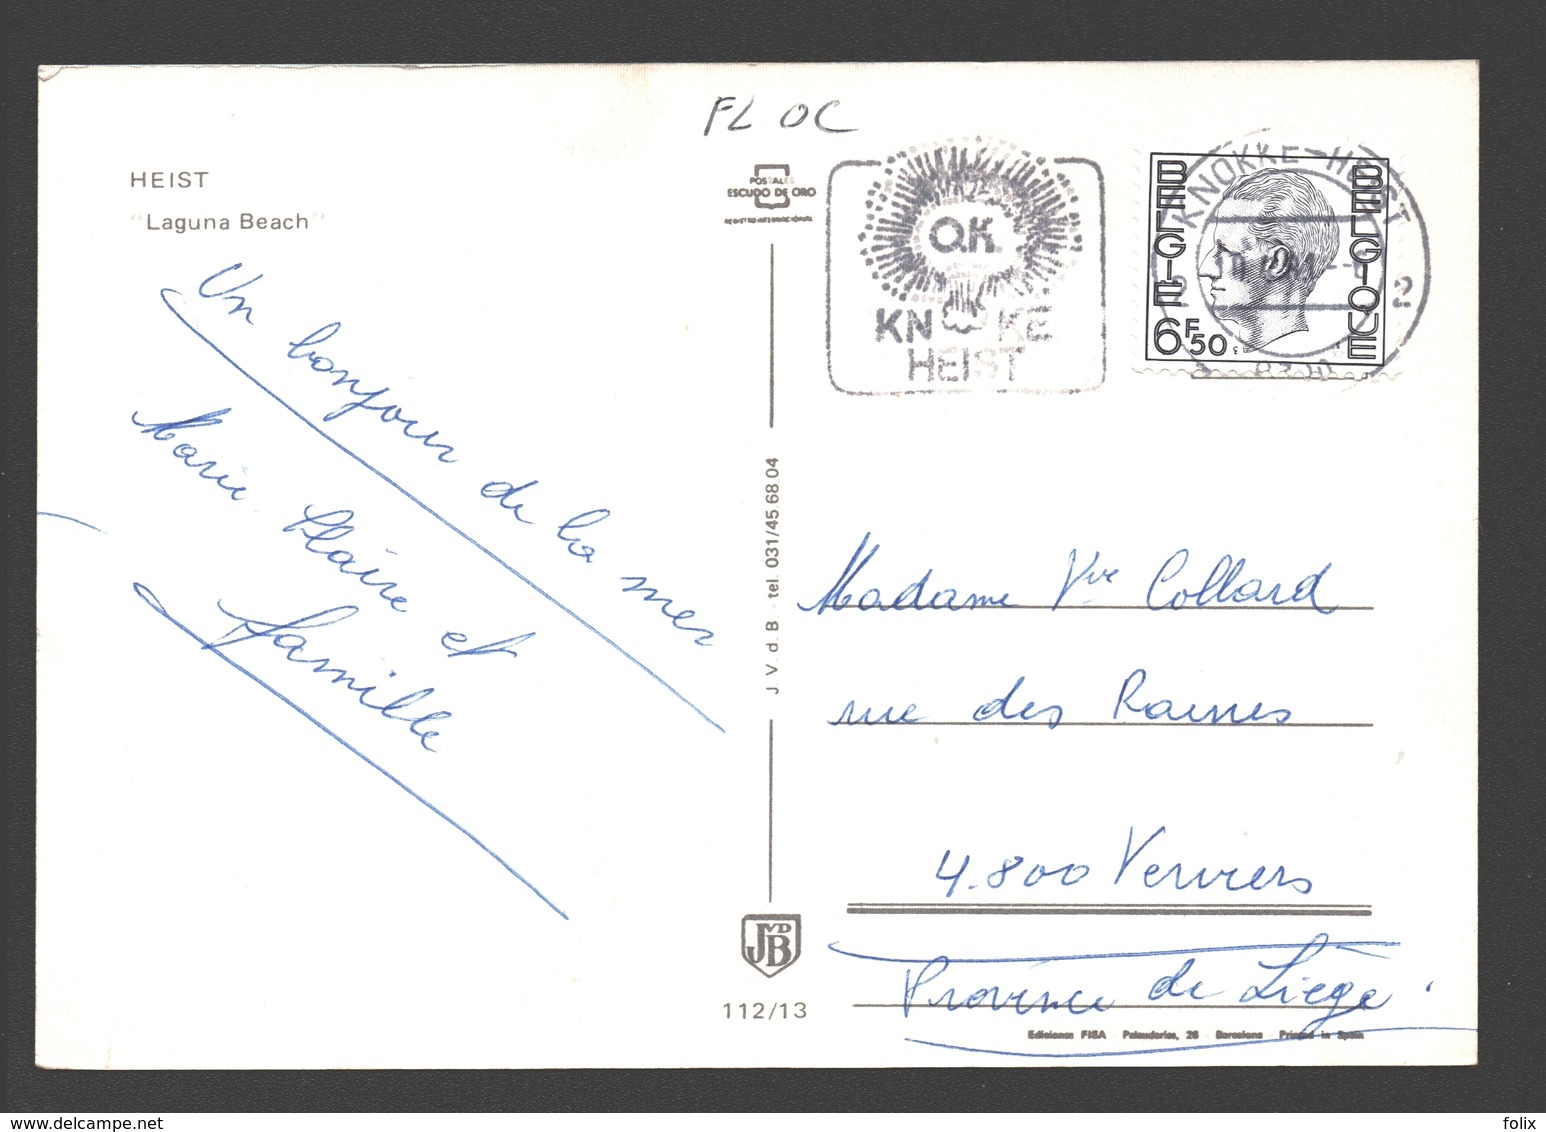 FL OC
HEIST
"Laguna Beach"
Un bonjour de la mer
Marie Claire et
famille
POSTALES
ESCUDO DE ORO
REGISTRO INTERNACIONAL
J. V. d. B - tel. 031/45.68.04
JVDB
112/13
O.K.
KNOKKE
HEIST
KNOKKE-HEIST
2
BELGIE
BELGIQUE
6F50
Madame Vve Collard
rue des Raines
4.800 Verviers
Province de Liège.
Ediciones FISA - Palaudarias, 26 - Barcelona - Printed in Spain
folix
www.delcampe.net